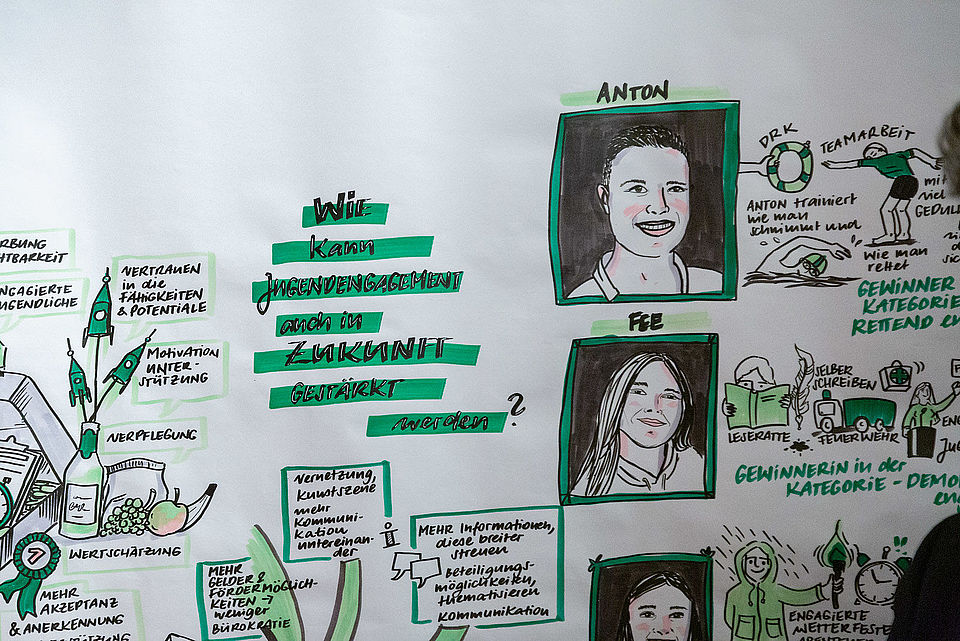 WIE
kann
JUGENDENGAGEMENT
auch in
ZUKUNFT
GESTÄRKT
werden?
NGAGIERTE
UGENDLICHE
VERTRAUEN
in die
FÄHIGKEITEN
& POTENTIALE
MOTIVATION
UNTER-
STÜTZUNG
VERPFLEGUNG
WERTSCHÄTZUNG
MEHR
AKZEPTANZ
& ANERKENNUNG
MEHR
GELDER &
FÖRDERMÖGLICH-
KEITEN →
weniger
BÜROKRATIE
Vernetzung,
Kunstszene
mehr
Kommuni-
kation
untereinan-
der
i
MEHR Informationen,
diese breiter
streuen
Beteiligungs-
möglichkeiten,
thematisieren
Kommunikation
ANTON
DRK
TEAMARBEIT
ANTON trainiert
wie man
schwimmt und
wie man
rettet
mit
viel
GEDUL
GEWINNER
KATEGORIE
RETTEND
FEE
SELBER
SCHREIBEN
LESERATTE
FEUERWEHR
GEWINNERIN in der
KATEGORIE - DEMO
ENGAGIERTE
WETTERFESTE